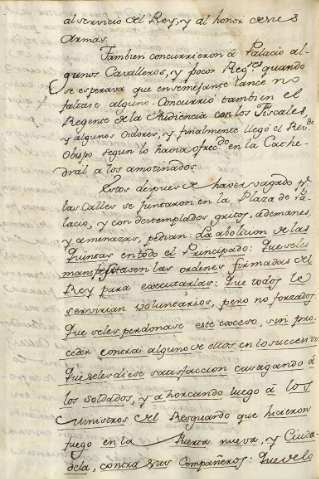 al servicio del Rey, y al honor de sus
Armas.
Tambien concurrieron á Palacio al-
gunos Cavalleros, y pocos Reg.res quando
se esperava que en semejante lance no
faltase alguno. Concurrió tambien el
Regente de la Audiencia con los Fiscales,
y algunos Oidores, y finalmente llegó el Rev.do
Obispo segun lo havia ofrec.do en la Cathe-
dral á los amotinados.
Estos despues de haver vagado p.r
las Calles se juntaron en la Plaza de Pa-
lacio, y con destemplados gritos, ademanes
y amenazas, pedian: La abolicion de las
Quintas en todo el Principado: Que se les
manifestasen las ordenes firmadas del
Rey para executarlas: Que todos le
servirian voluntarios, pero no forzados
Que se les perdonase este exceso, sin pro-
ceder contra alguno de ellos en lo succesivo
Que se les diese satisfaccion castigando á
los Soldados, y ahorcando luego á los
Ministros del Resguardo que hicieron
fuego en la Puerta nueva, y Ciuda-
dela, contra sus Compañeros: Que se le